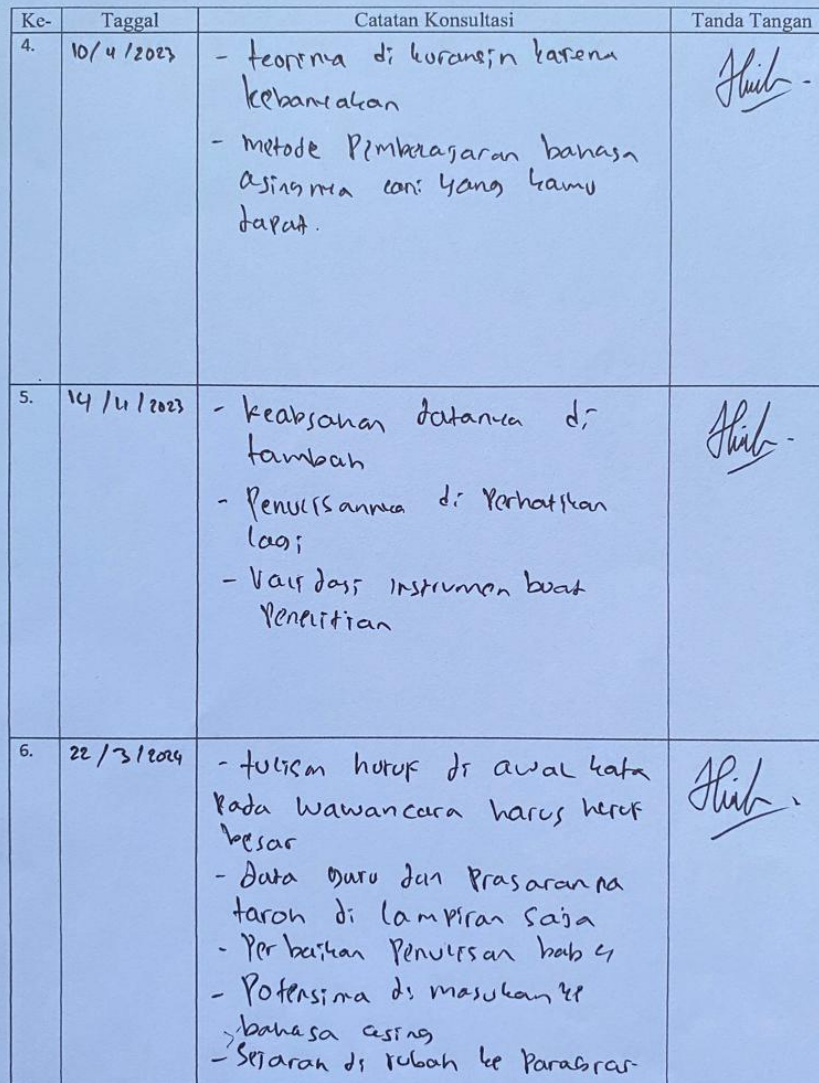 Ke- Taggal Catatan Konsultasi Tanda Tangan
4. 10/4/2023 - teorinya di kurangin karena
kebanyakan
- metode Pembelajaran bahasa
asingnya cari yang kamu
dapat.
5. 14/4/2023 - keabsahan datanya di
tambah
- Penulisannya di Perhatikan
lagi
- Validasi instrumen buat
Penelitian
6. 22/3/2024 - tulisan huruf di awal kata
Pada wawancara harus huruf
besar
- data guru dan Prasarana
taroh di lampiran saja
- Perbaikan Penulisan bab 4
- Potensinya di masukan ke
bahasa asing
- Sejarah di rubah ke Paragraf